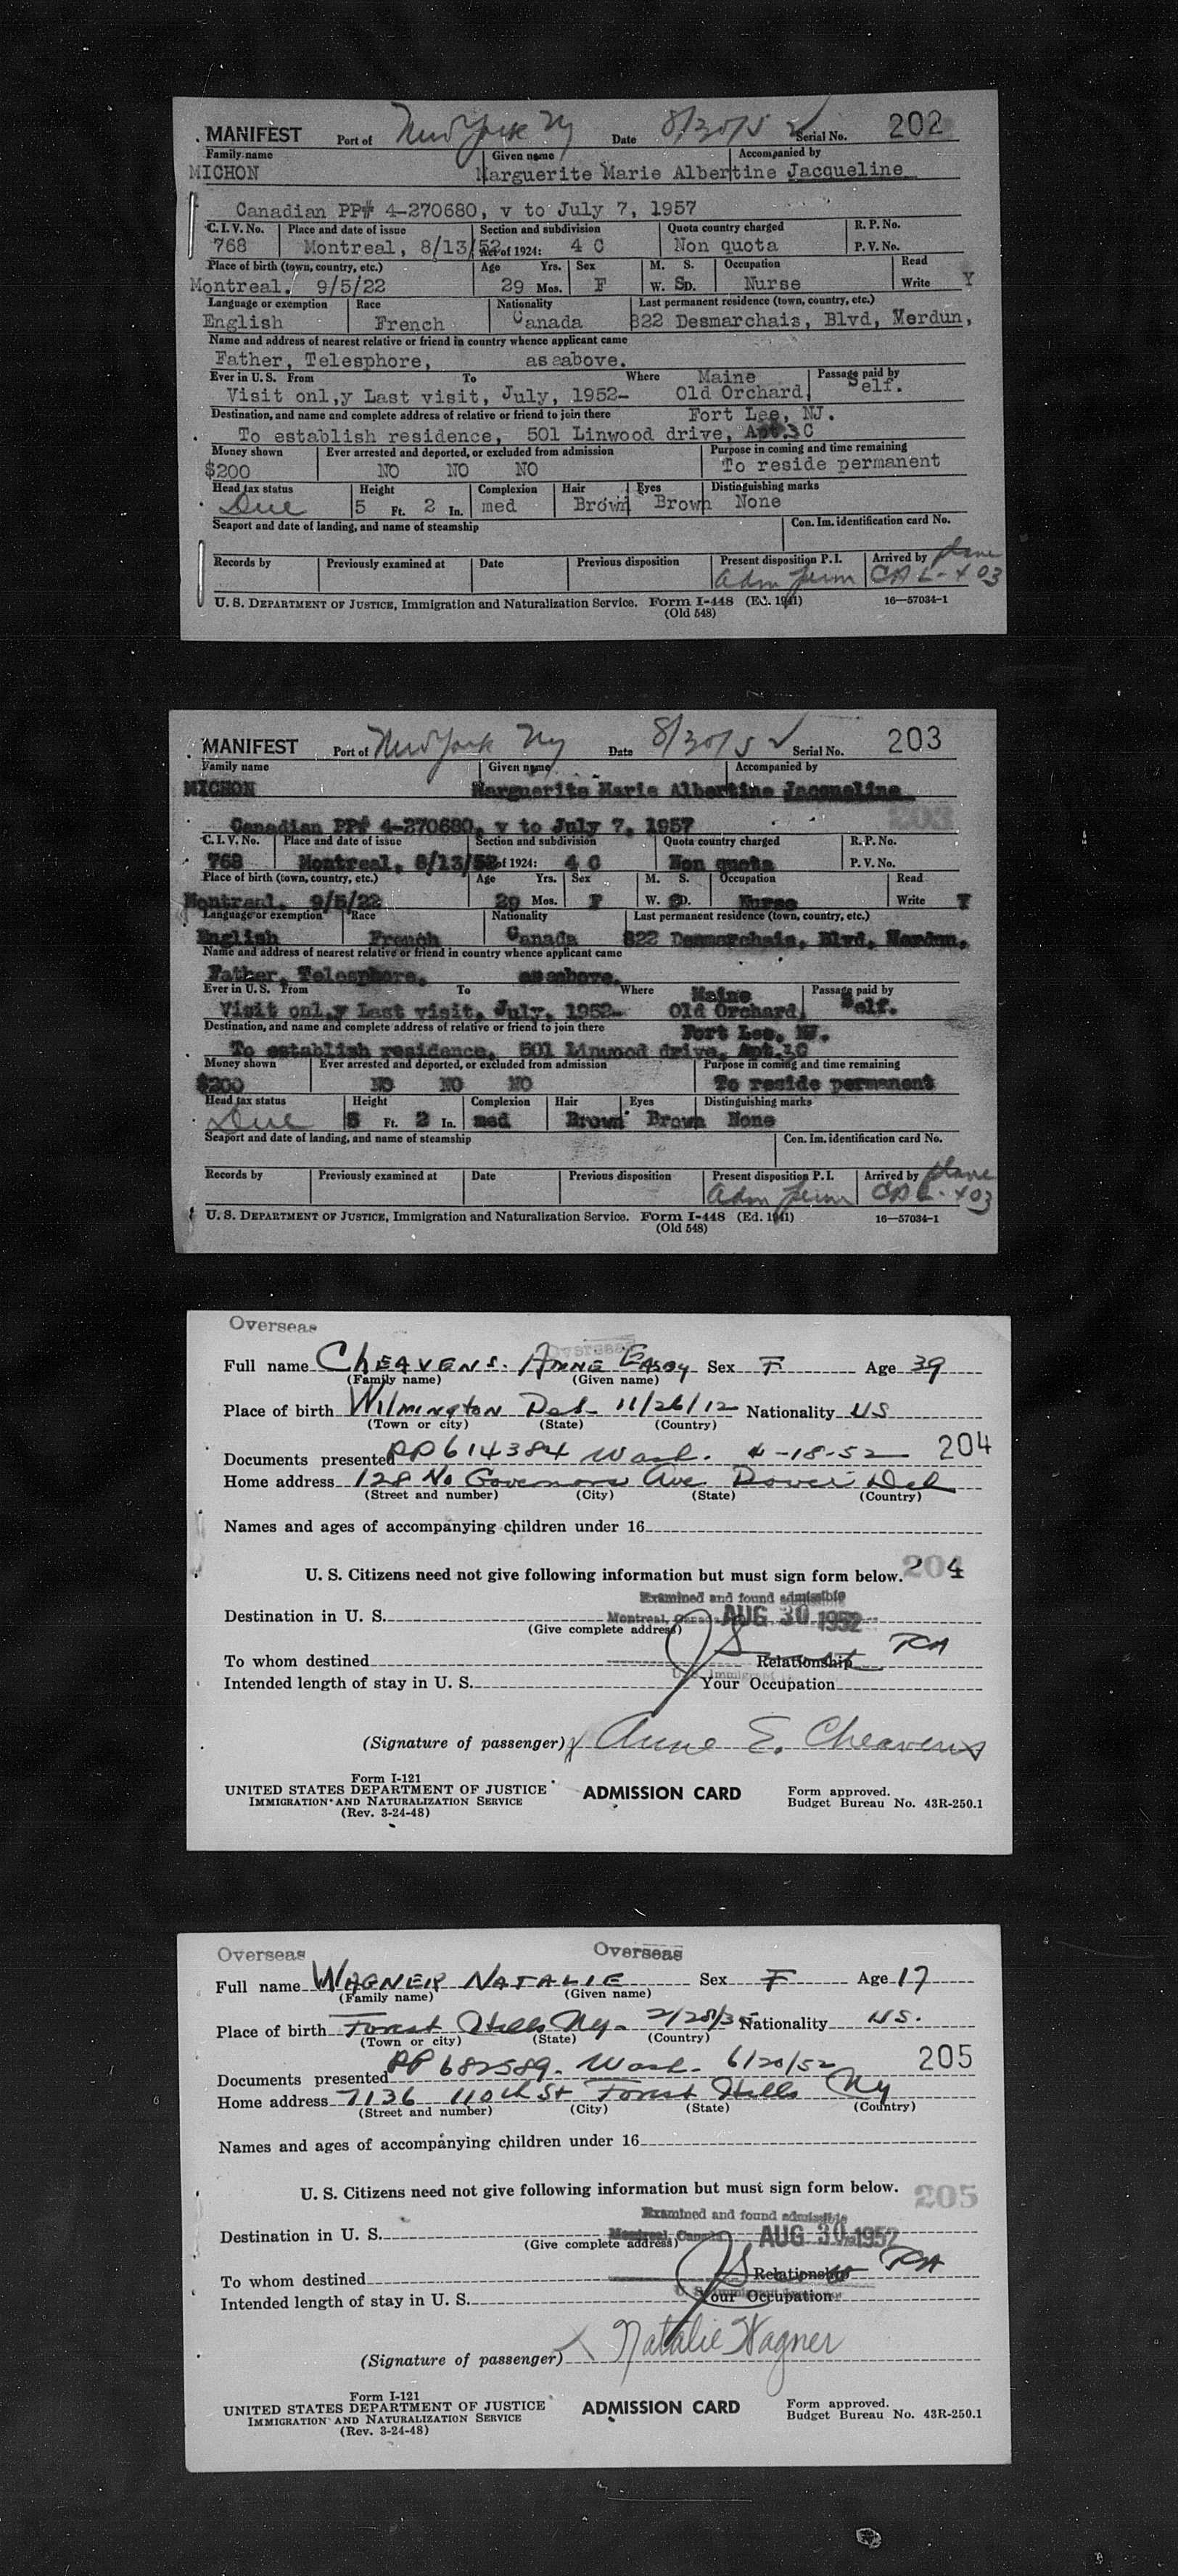 MANIFEST Port of New York Ny Date 8/30/52 Serial No. 202
Family name Given name Accompanied by
MICHON Marguerite Marie Albertine Jacqueline
Canadian PP# 4-270680, v to July 7, 1957
C. I. V. No. Place and date of issue Section and subdivision Quota country charged R. P. No.
768 Montreal, 8/13/52 Act of 1924: 4 C Non quota P. V. No.
Place of birth (town, country, etc.) Age Yrs. Sex M. S. Occupation Read
Montreal. 9/5/22 29 Mos. F W. SD. Nurse Write Y
Language or exemption Race Nationality Last permanent residence (town, country, etc.)
English French Canada 822 Desmarchais, Blvd, Merdun,
Name and address of nearest relative or friend in country whence applicant came
Father, Telesphore, as above.
Ever in U. S. From To Where Maine Passage paid by
Visit onl,y Last visit, July, 1952- Old Orchard, Self.
Destination, and name and complete address of relative or friend to join there Fort Lee, NJ.
To establish residence, 501 Linwood drive, Apt.3C
Money shown Ever arrested and deported, or excluded from admission Purpose in coming and time remaining
$200 NO NO NO To reside permanent
Head tax status Height Complexion Hair Eyes Distinguishing marks
Due 5 Ft. 2 In. med Brown Brown None
Seaport and date of landing, and name of steamship Con. Im. identification card No.
Records by Previously examined at Date Previous disposition Present disposition P. I. Arrived by plane
Adm Perm CPA L-403
U. S. DEPARTMENT OF JUSTICE, Immigration and Naturalization Service. Form I-448 (Ed. 1941) 16—57034-1
(Old 548)
MANIFEST Port of New York Ny Date 8/30/52 Serial No. 203
Family name Given name Accompanied by
MICHON Marguerite Marie Albertine Jacqueline
203
Canadian PP# 4-270680, v to July 7, 1957
C. I. V. No. Place and date of issue Section and subdivision Quota country charged R. P. No.
768 Montreal, 8/13/52 of 1924: 4 C Non quota P. V. No.
Place of birth (town, country, etc.) Age Yrs. Sex M. S. Occupation Read
Montreal. 9/5/22 29 Mos. F W. SD. Nurse Write Y
Language or exemption Race Nationality Last permanent residence (town, country, etc.)
English French Canada 822 Desmarchais, Blvd, Merdun,
Name and address of nearest relative or friend in country whence applicant came
Father, Telesphore, as above.
Ever in U. S. From To Where Maine Passage paid by
Visit onl,y Last visit, July, 1952- Old Orchard, Self.
Destination, and name and complete address of relative or friend to join there Fort Lee, NJ.
To establish residence, 501 Linwood drive, Apt.3C
Money shown Ever arrested and deported, or excluded from admission Purpose in coming and time remaining
$200 NO NO NO To reside permanent
Head tax status Height Complexion Hair Eyes Distinguishing marks
Due 5 Ft. 2 In. med Brown Brown None
Seaport and date of landing, and name of steamship Con. Im. identification card No.
Records by Previously examined at Date Previous disposition Present disposition P. I. Arrived by plane
Adm Perm CPA L-403
U. S. DEPARTMENT OF JUSTICE, Immigration and Naturalization Service. Form I-448 (Ed. 1941) 16—57034-1
(Old 548)
Overseas
Overseas
Full name CHEAVENS. ANNE EASBY Sex F Age 39
(Family name) (Given name)
Place of birth Wilmington Del- 11/26/12 Nationality US
(Town or city) (State) (Country)
Documents presented PP 614384 Wash. 4-18-52 204
Home address 128 No Governors Ave Dover Del
(Street and number) (City) (State) (Country)
Names and ages of accompanying children under 16
U. S. Citizens need not give following information but must sign form below. 204
Examined and found admissible
Destination in U. S. Montreal, Canada AUG 30 1952
(Give complete address)
To whom destined Relationship TCA
U.S. Immigrant
Intended length of stay in U. S. Your Occupation
(Signature of passenger) x Anne E. Cheavens
Form I-121
UNITED STATES DEPARTMENT OF JUSTICE ADMISSION CARD Form approved.
IMMIGRATION AND NATURALIZATION SERVICE Budget Bureau No. 43R-250.1
(Rev. 3-24-48)
Overseas Overseas
Full name WAGNER NATALIE Sex F Age 17
(Family name) (Given name)
Place of birth Forest Hills Ny- 2/28/35 Nationality US.
(Town or city) (State) (Country)
Documents presented PP 682589- Wash- 6/20/52 205
Home address 7136 110th St Forest Hills Ny
(Street and number) (City) (State) (Country)
Names and ages of accompanying children under 16
U. S. Citizens need not give following information but must sign form below. 205
Examined and found admissible
Destination in U. S. Montreal, Canada AUG 30 1952
(Give complete address)
To whom destined Relationship TCA
Intended length of stay in U. S. Your Occupation
(Signature of passenger) x Natalie Wagner
Form I-121
UNITED STATES DEPARTMENT OF JUSTICE ADMISSION CARD Form approved.
IMMIGRATION AND NATURALIZATION SERVICE Budget Bureau No. 43R-250.1
(Rev. 3-24-48)